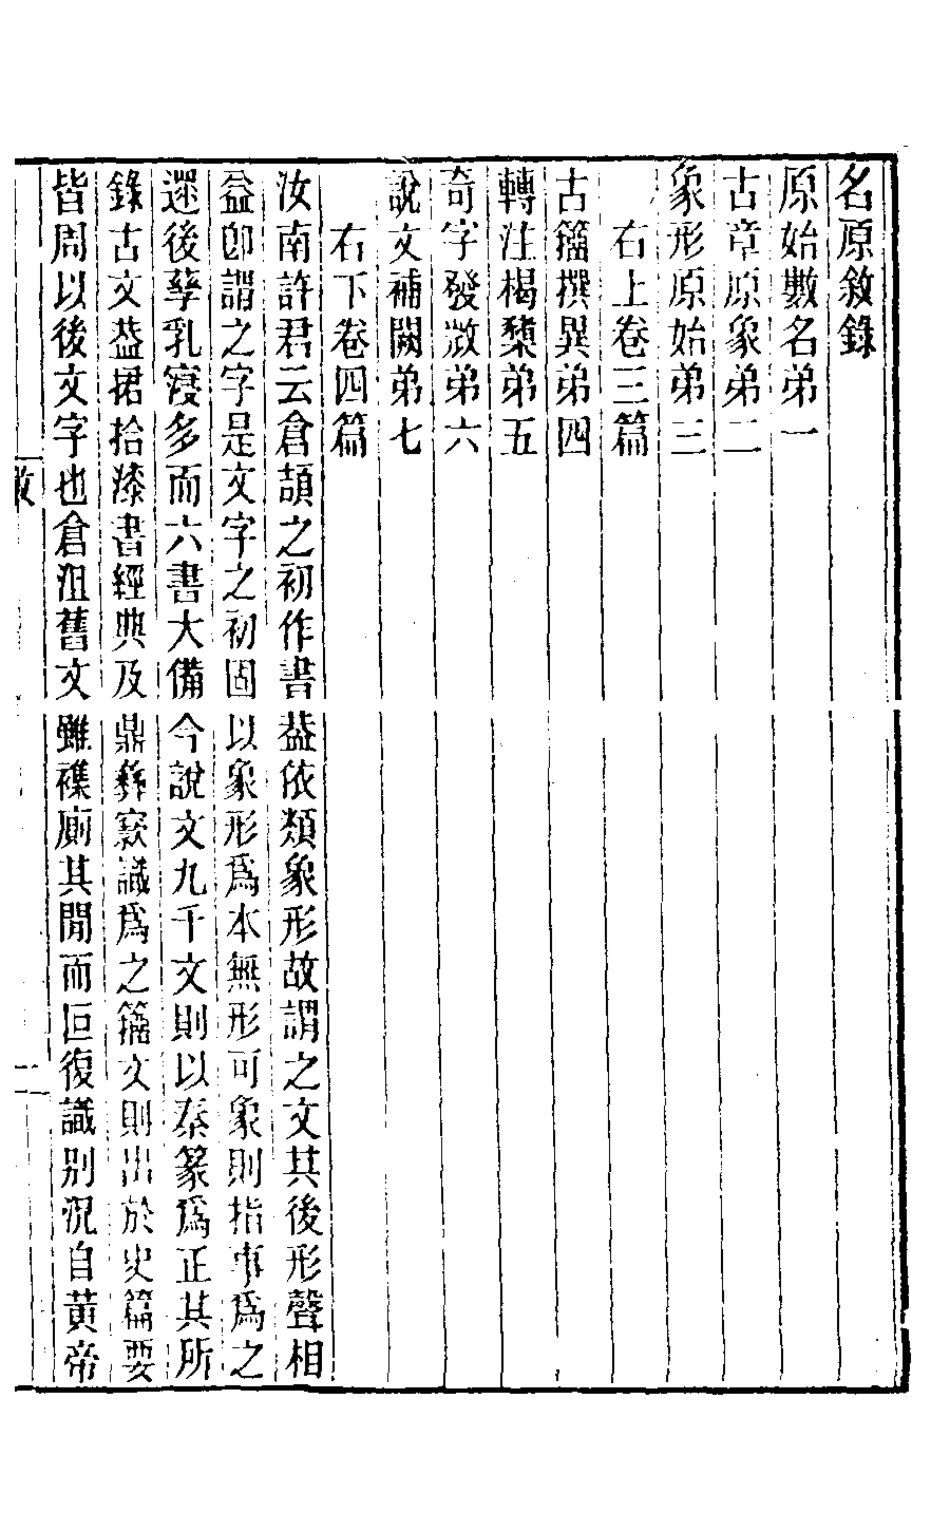 名原敘錄
原始數名弟一
古章原象弟二
象形原始弟三
右上卷三篇
古籒撰異弟四
轉注楬櫫弟五
奇字發微弟六
說文補闕弟七
右下卷四篇
汝南許君云倉頡之初作書葢依類象形故謂之文其後形聲相
益卽謂之字是文字之初固以象形爲本無形可象則指事爲之
逮後孳乳寖多而六書大備今說文九千文則以秦篆爲正其所
錄古文葢捃拾漆書經典及鼎彝窾識爲之籒文則出於史篇要
皆周以後文字也倉沮舊文雖襍廁其閒而叵復識別況自黃帝
敘
二